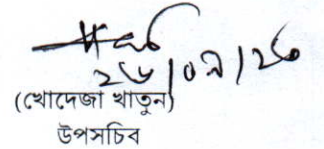 ২৬/০৯/২০
(খোদেজা খাতুন)
উপসচিব